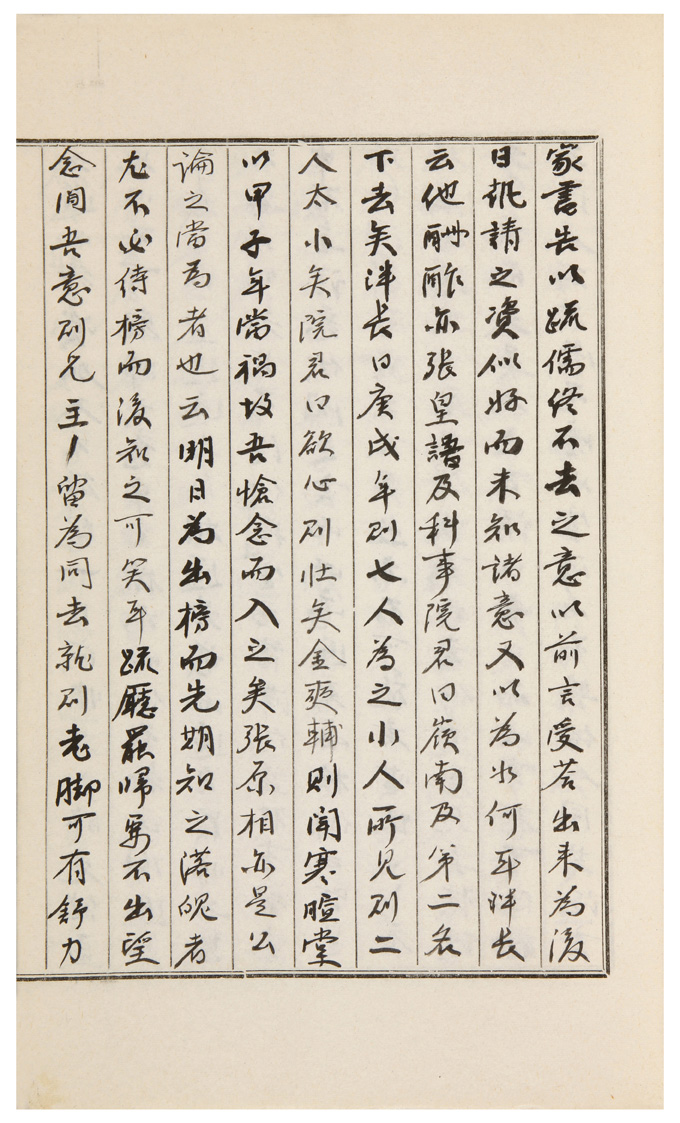 家書告以疏儒終不去之意以前言受答出來為後
日執請之資似好而未知諸意又以為如何耳泮長
云他酬酢亦張皇語及科事院君曰嶺南及第二名
下去矣泮長曰庚戌年則七人為之小人所見則二
人太小矣院君曰欲心則壯矣金奭輔則聞寒暄堂
以甲子年當禍故吾愴念而入之矣張原相亦是公
論之當為者也云明日為出榜而先期知之落魄者
尤不必待榜而後知之可笑耳疏廳罷歸要不出望
念間吾意則兄主留為同去就則老脚可有舒力